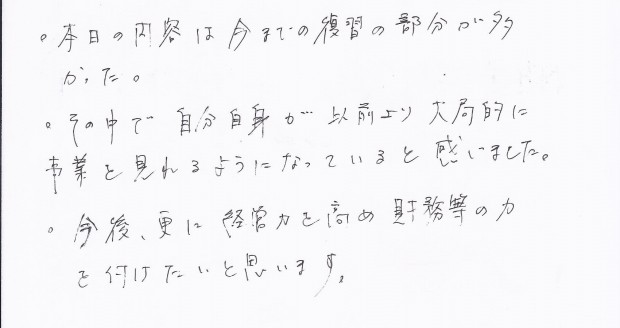 。本日の内容は今までの復習の部分が多
かった。
。その中で自分自身が以前より大局的に
事業を見れるようになっていると感いました。
。今後、更に経営力を高め財務等の力
を付けたいと思います。